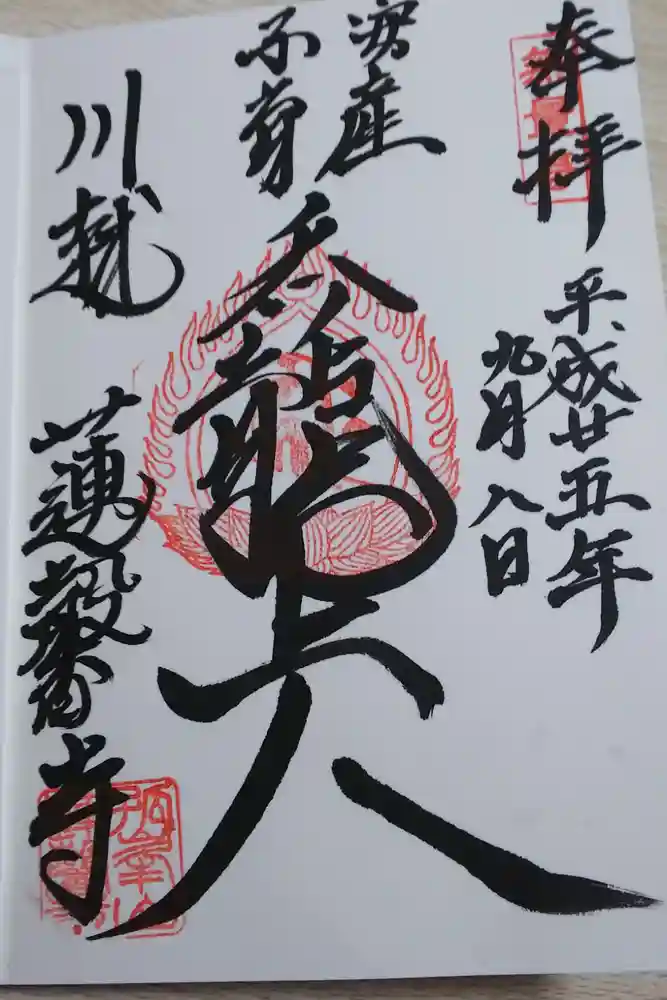 奉拝
平成廿五年
九月八日
安産
子育
呑龍上人
川越
蓮馨寺